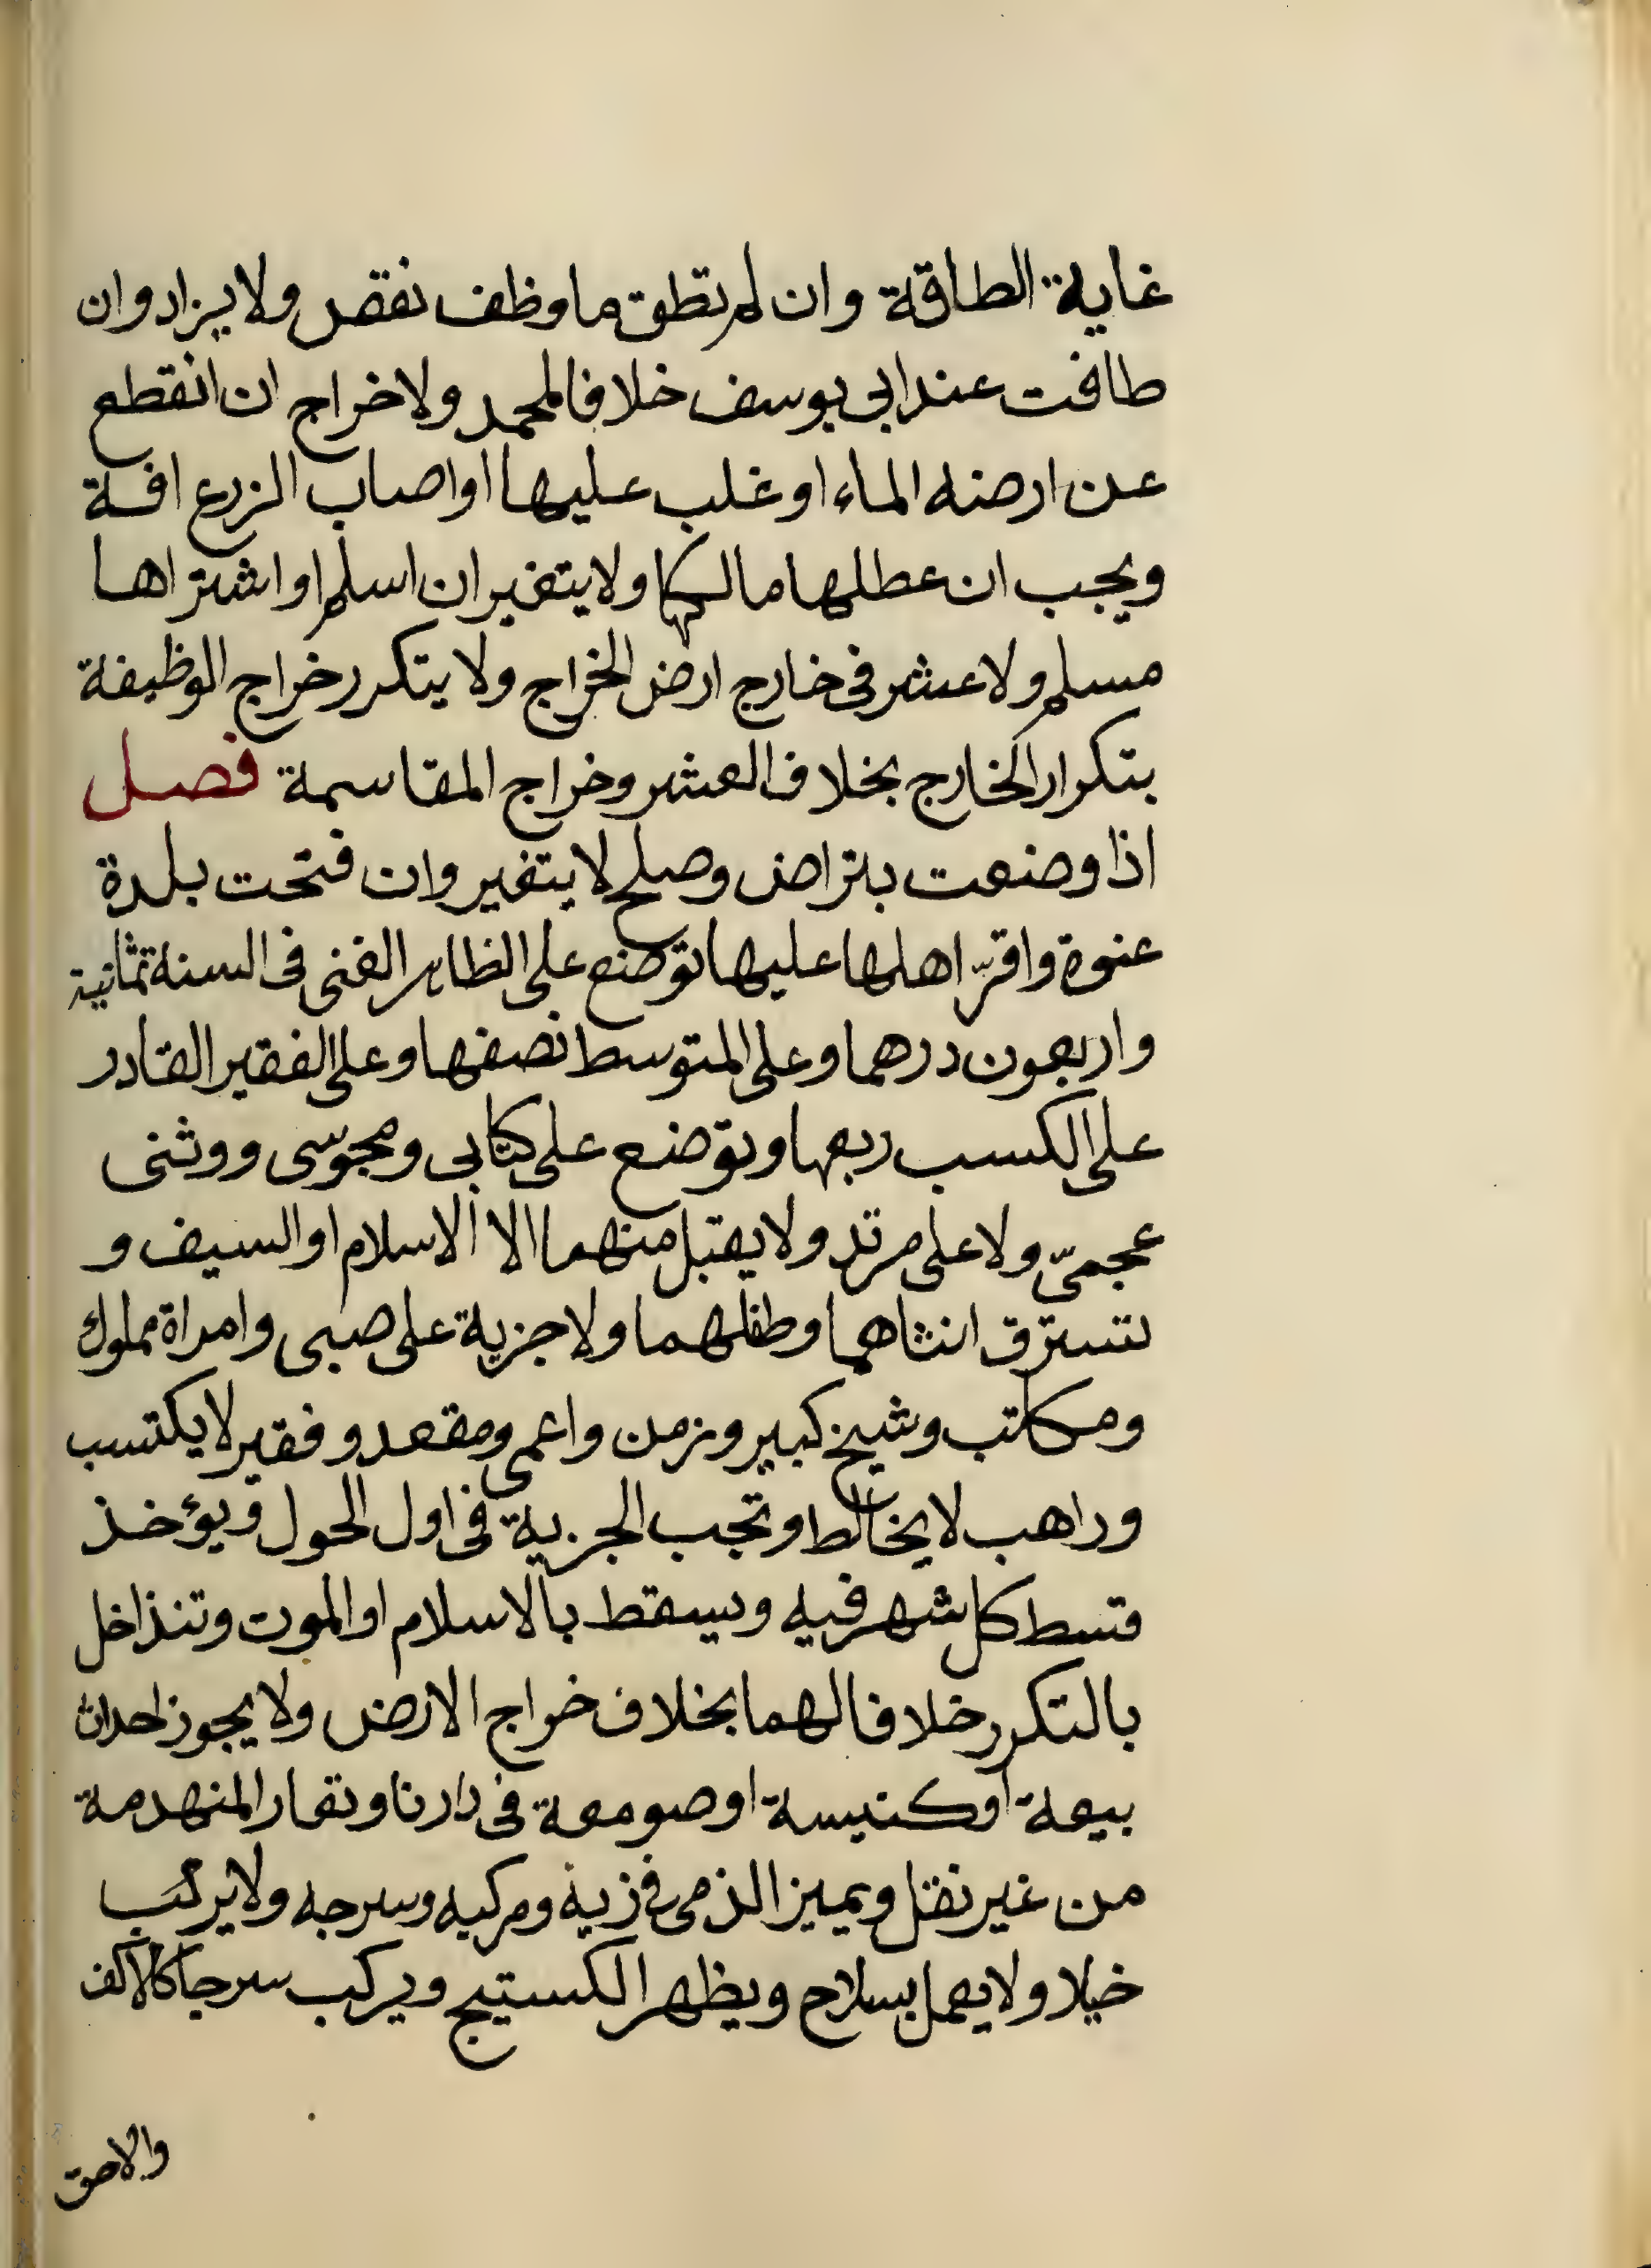 غاية الطاقة وان لم تطق ما وظف نقص ولا يزاد وان
طاقت عند ابي يوسف خلافا لمحمد ولا خراج ان انقطع
عن ارضه الماء او غلب عليها او اصاب الزرع افة
ويجب ان عطلها مالكها ولا يتغير ان اسلم او اشتراها
مسلم ولا عشر في خارج ارض الخراج ولا يتكرر خراج الوظيفة
بتكرار الخارج بخلاف العشر وخراج المقاسمة فصل
اذا وضعت بتراض وصلح لا يتغير وان فتحت بلدة
عنوة واقرّ اهلها عليها توضع على الظاهر الغنى في السنة ثمانية
واربعون درهما وعلى المتوسط نصفها وعلى الفقير القادر
على الكسب ربعها وتوضع على كتابى ومجوسى ووثنى
عجمىّ ولا على مرتد ولا يقبل منهما الا الاسلام او السيف و
تسترق انثاهما وطفلهما ولا جزية على صبى وامراة مملوك
ومكاتب وشيخ كبير وزمن واعمى ومقعد وفقير لا يكتسب
وراهب لا يخالط وتجب الجزية في اول الحول ويؤخذ
قسط كل شهر فيه ويسقط بالاسلام او الموت وتنذاخل
بالتكرر خلافا لهما بخلاف خراج الارض ولا يجوز احداث
بيعة او كنيسة او صومعة في دارنا وتعار المنهدمة
من غير نقل ويميز الذمى في زيه ومركبه وسرجه ولا يركب
خيلا ولا يعمل بسلاح ويظهر الكستيج ويركب سرجا كالاكف
والاحق